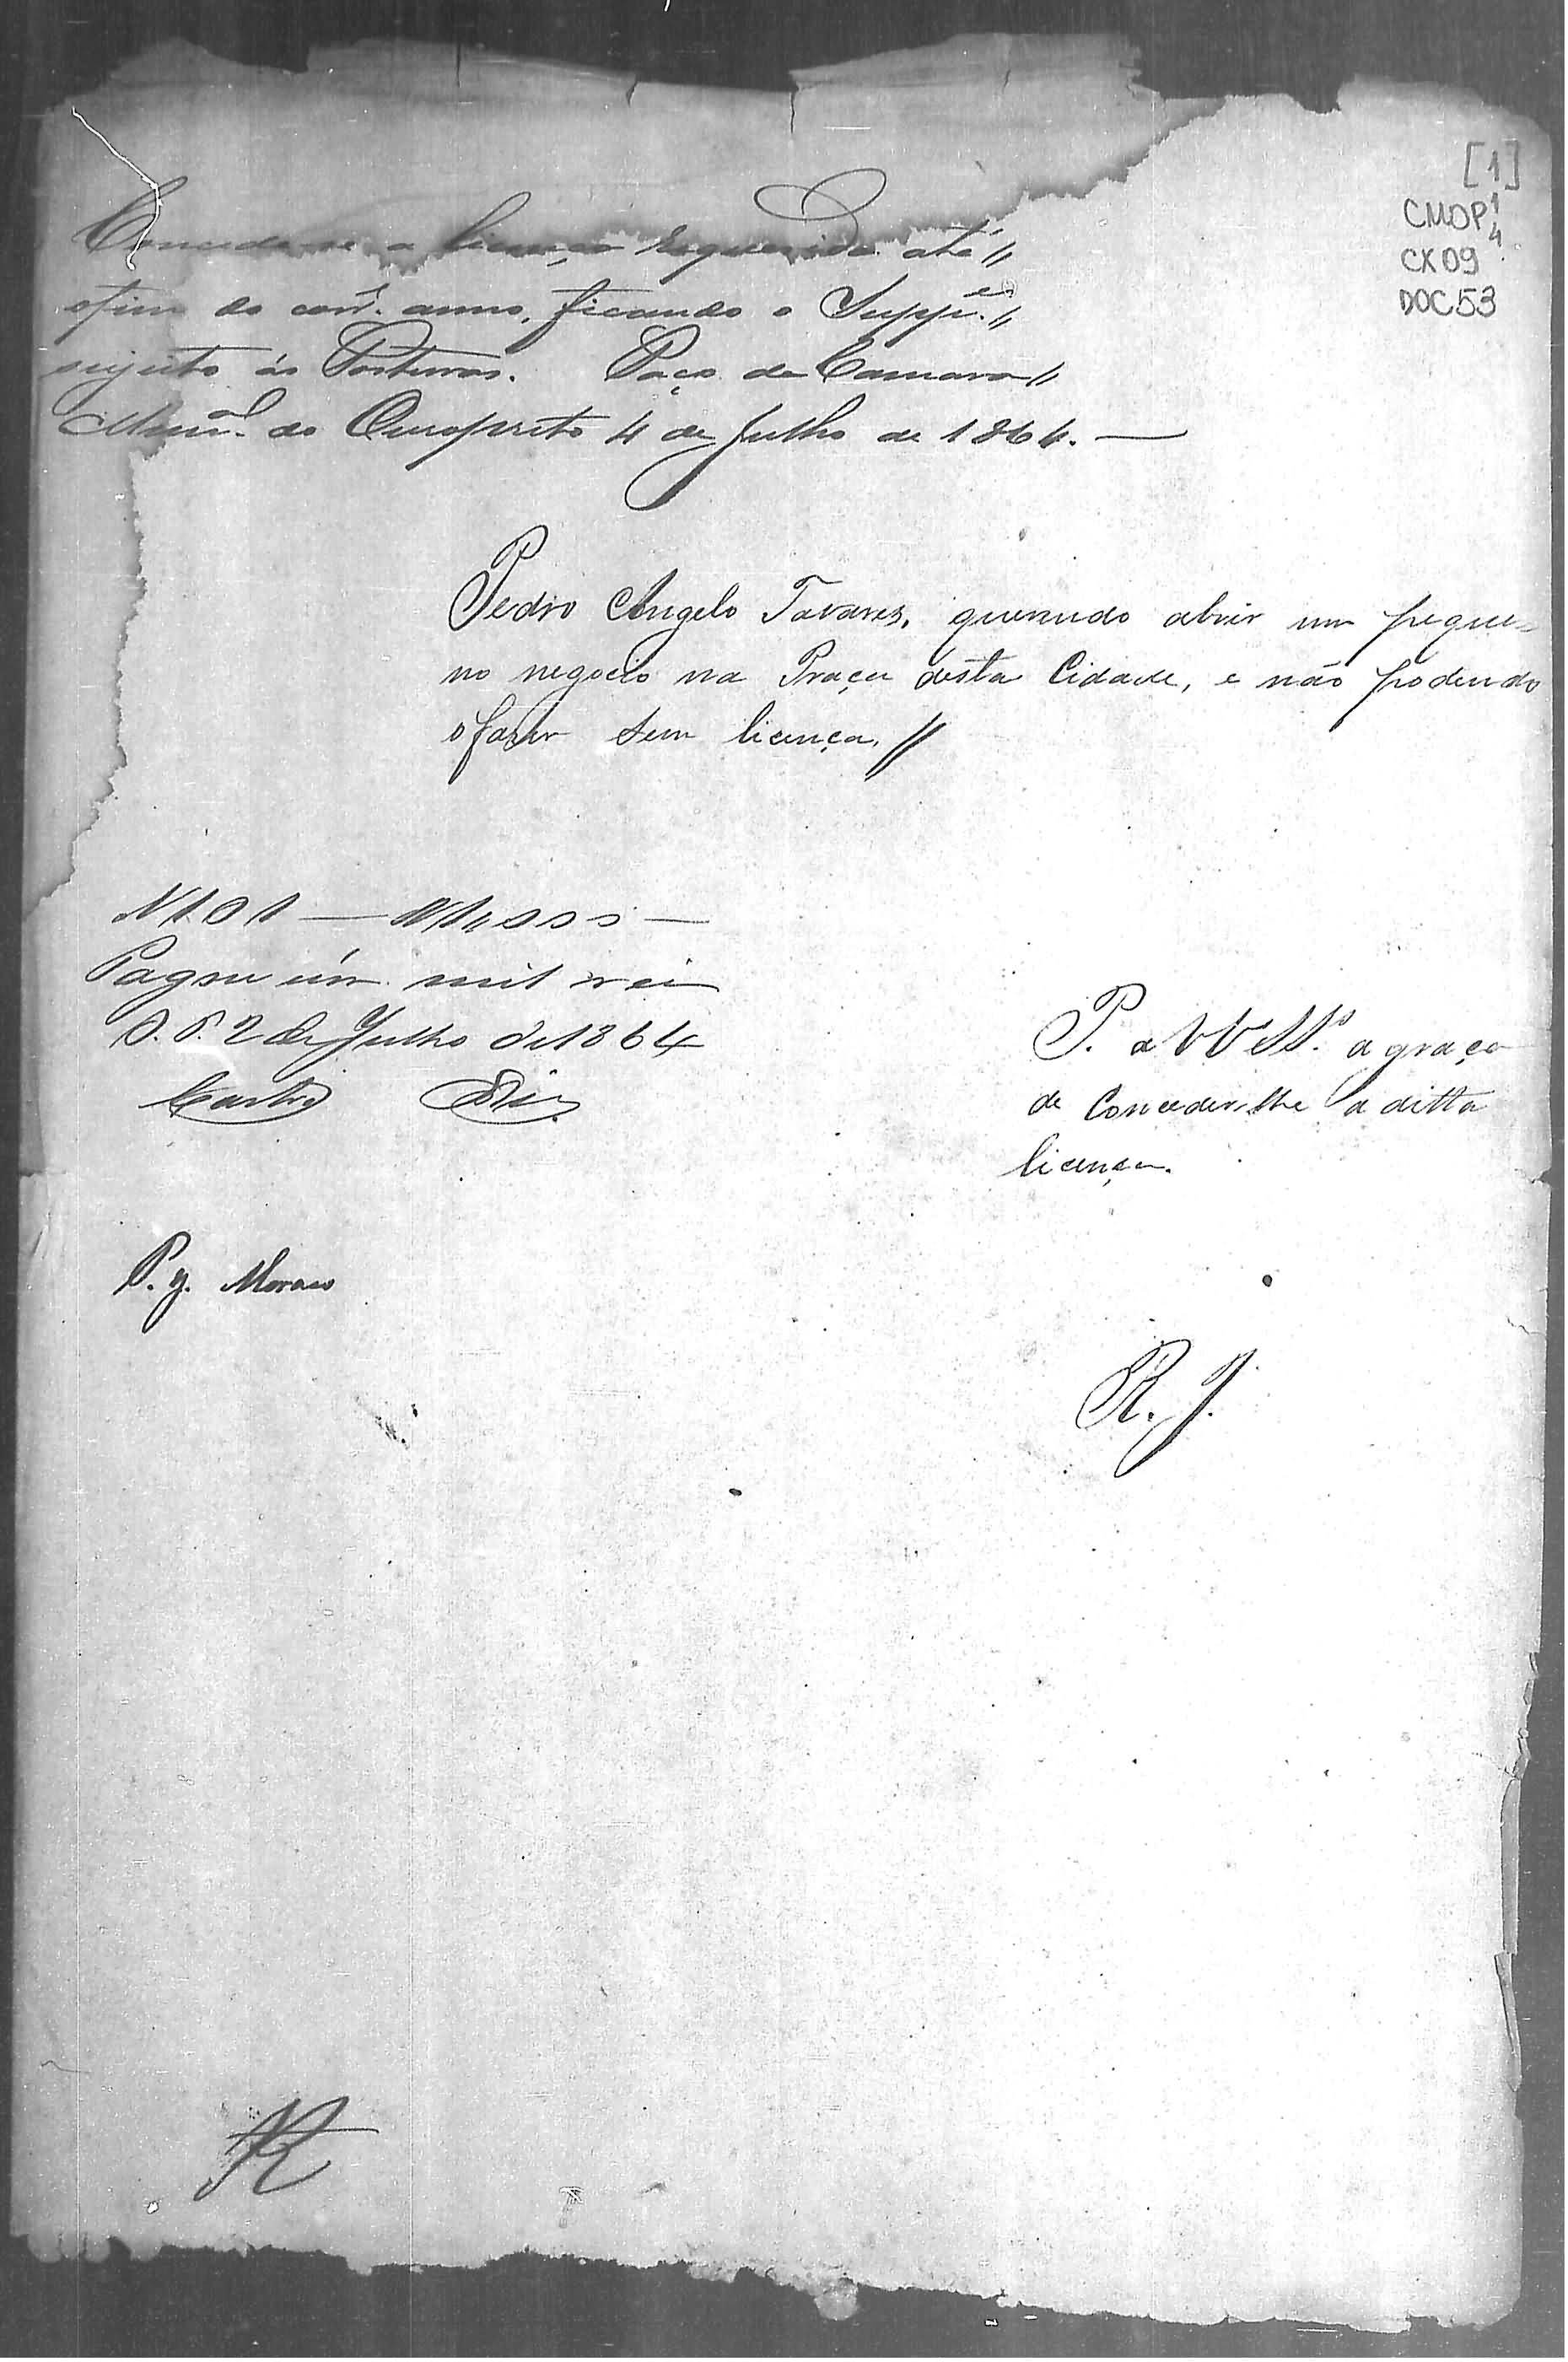 [1]
CMOP 1/4
CX 09
DOC 53
Concede-se a licença requerida até //
o fim do corr.e anno, ficando o Supp.e //
sujeito ás Posturas. Paço da Camara //
Mun.al do Ouropreto 4 de Julho de 1864. —
Pedro Angelo Tavares, querendo abrir um peque=
no negocio na Praça desta Cidade, e não podendo
o fazer sem licença, //
N 101 —
Pagou um mil rei
O. P. 2 de Julho de 1864
Castro
P. a VV SS.as a graça
de Conceder-lhe a ditta
licença.
P. g. Moraes
R. J.